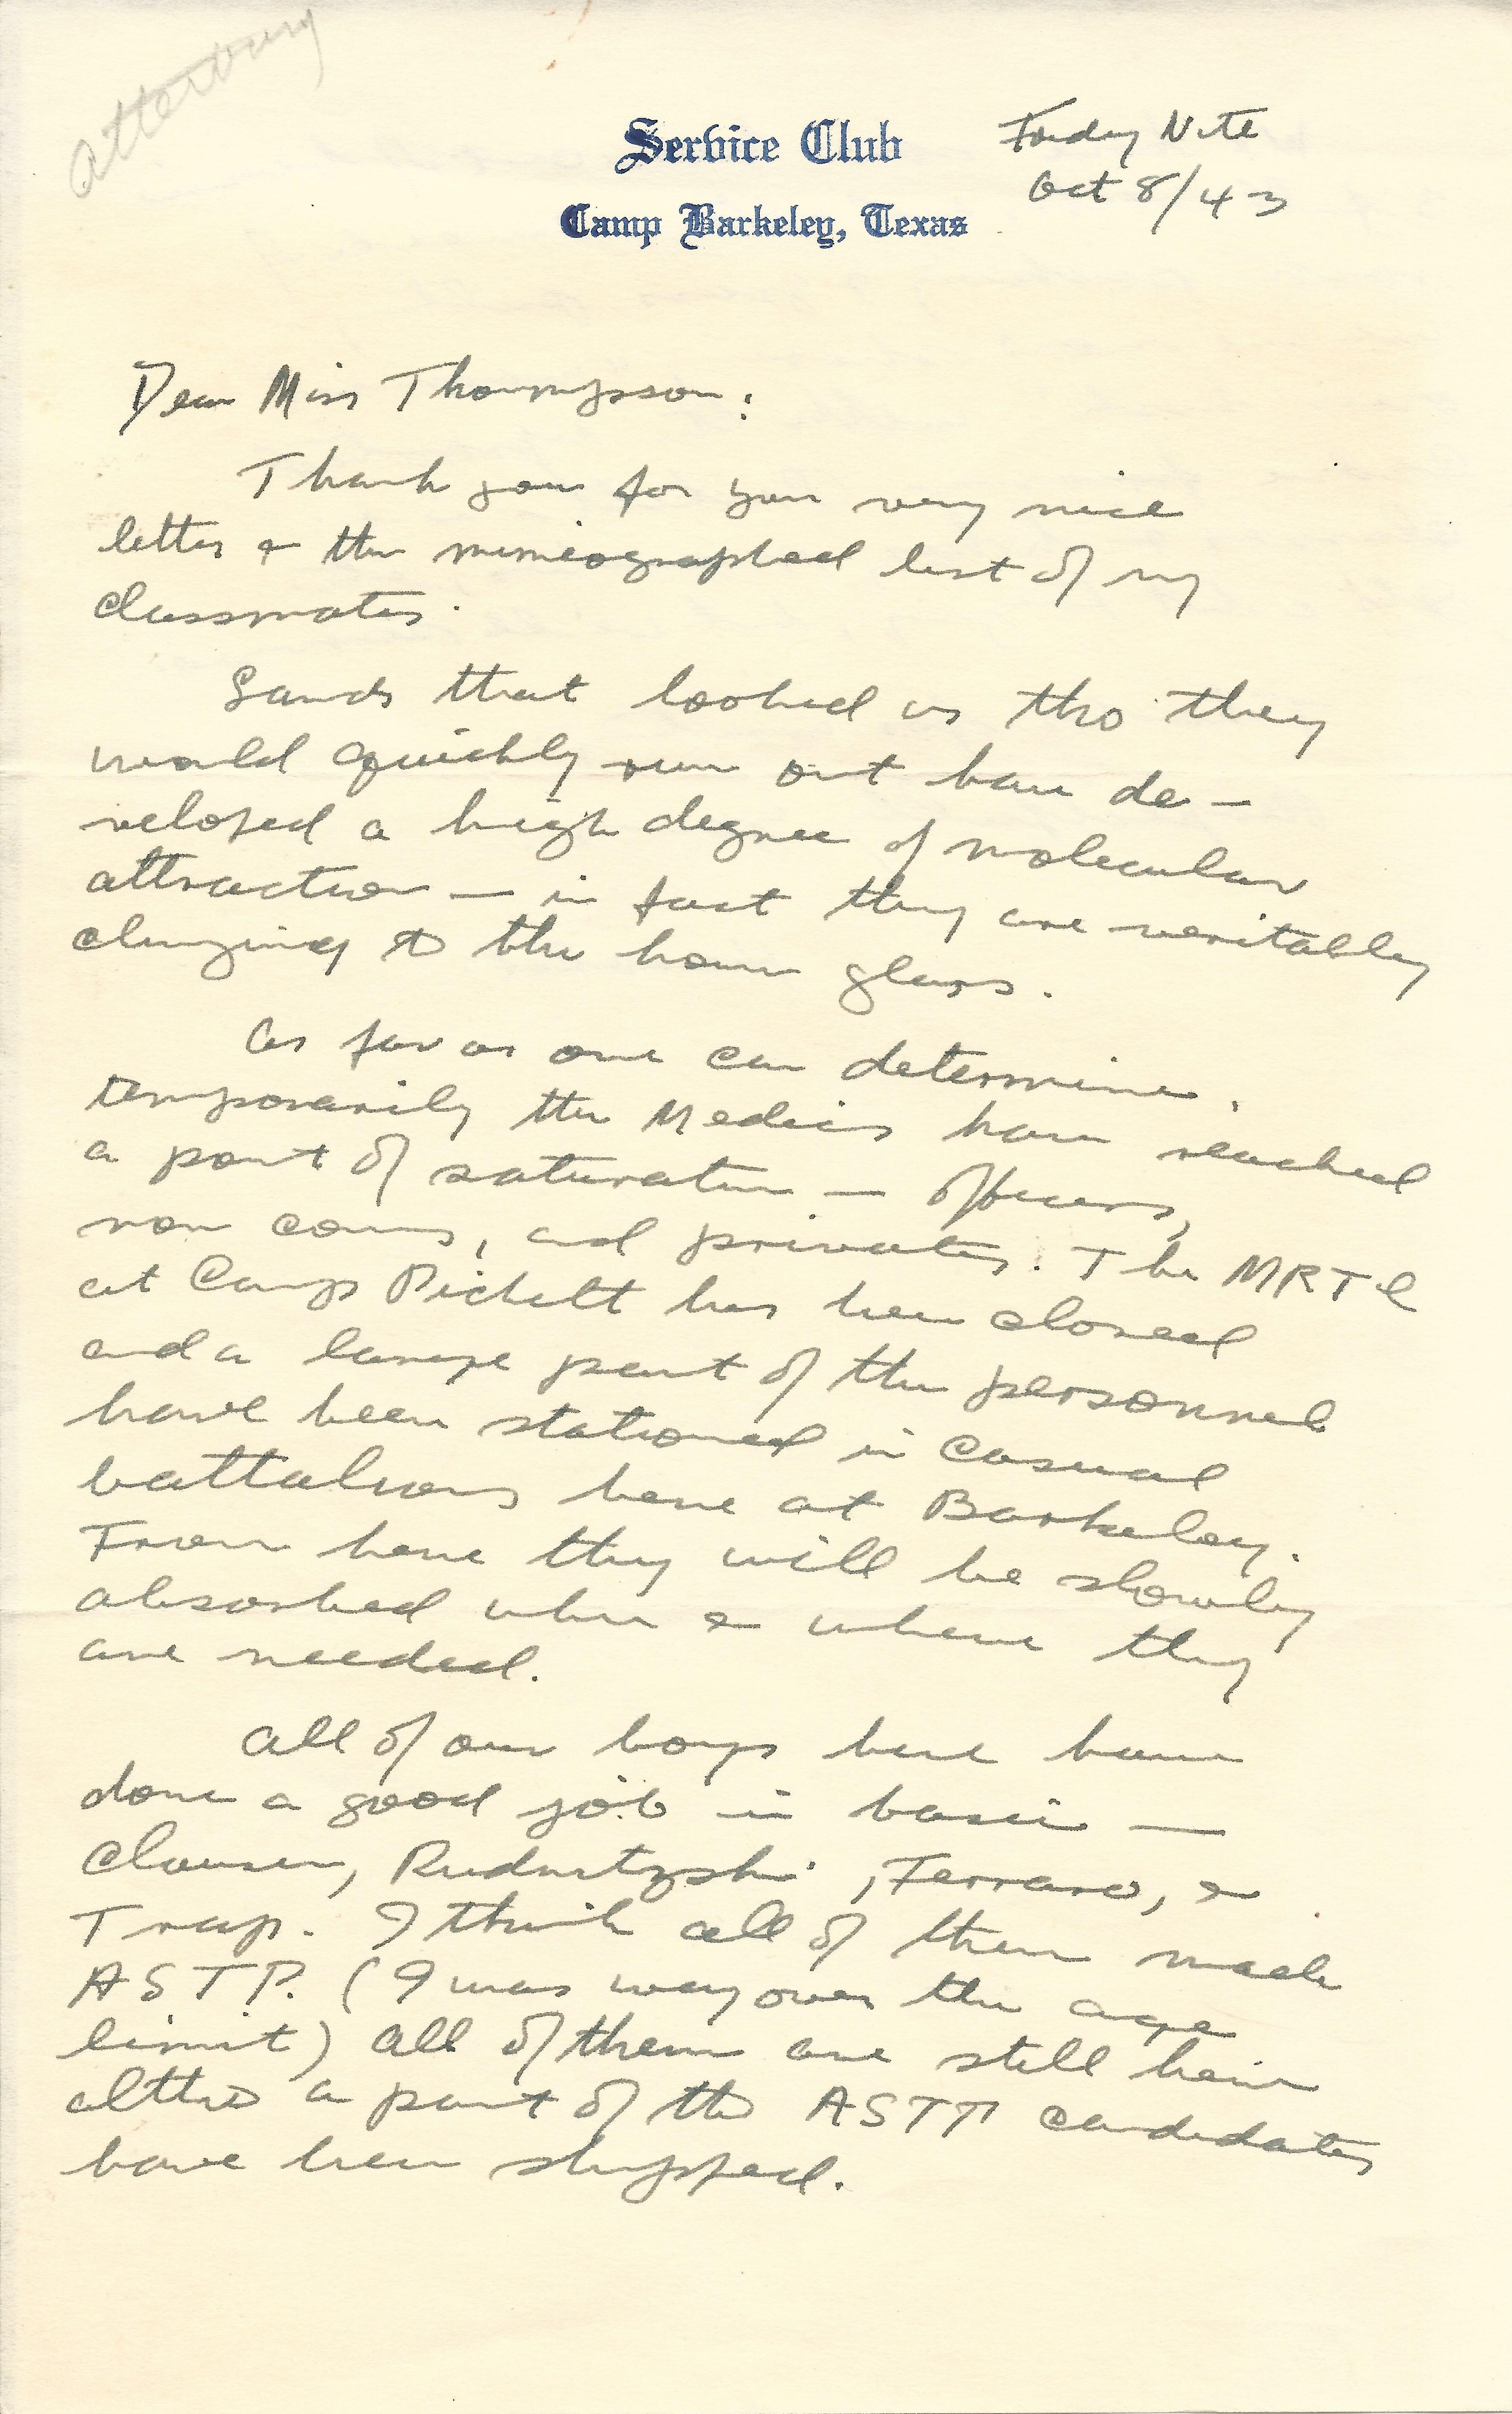 Atterbury
Service Club
Camp Barkeley, Texas
Friday Nite
Oct 8/43
Dear Miss Thompson:
Thank you for your very nice
letter & the mimeographed list of my
classmates.
Sands that looked as tho they
would quickly run out have de-
veloped a high degree of molecular
attraction — in fact they are veritably
clinging to the hour glass.
As far as one can determine,
temporarily the Medics have reached
a point of saturation — officers,
non coms, and privates. The MRTC
at Camp Pickett has been closed
and a large part of the personnel
have been stationed in casual
battalions here at Barkeley.
From here they will be slowly
absorbed when & where they
are needed.
All of our boys here have
done a good job in basic —
Clausen, Rudnitzski, Ferraro, &
Trap. I think all of them made
ASTP. (I was way over the age
limit) All of them are still here
altho a part of the ASTP candidates
have been shipped.